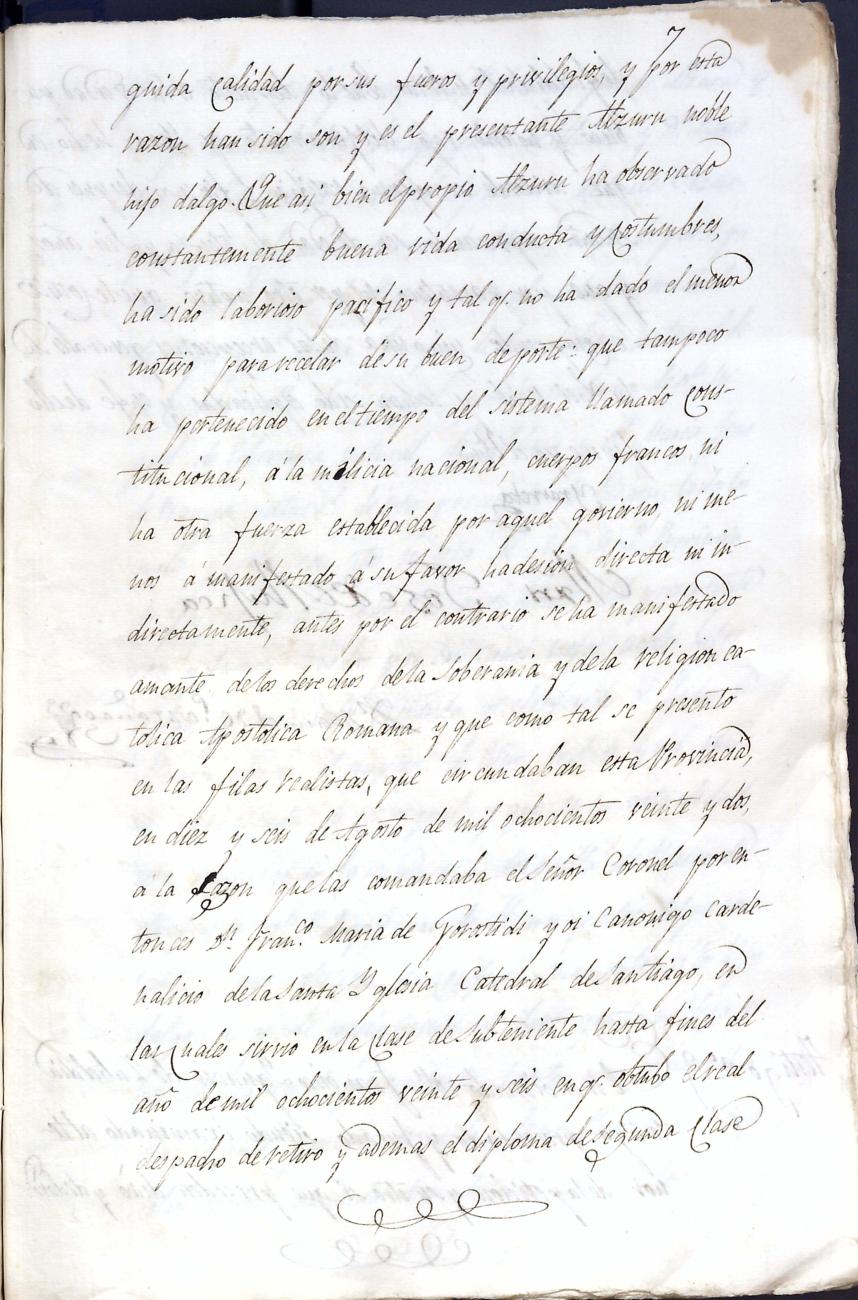 7
guida calidad por sus fueros y privilegios, y por esta
razon han sido son y es el presentante Alzuru noble
hijo dalgo. Que asi bien el propio Alzuru ha observado
constantemente buena vida conducta y costumbres,
ha sido laborioso pacifico y tal q.e no ha dado el menor
motivo para recelar de su buen deporte: que tampoco
ha pertenecido en el tiempo del sistema llamado Cons-
titucional, á la milicia nacional, cuerpos francos, ni
ha otra fuerza establecida por aquel govierno, ni me-
nos á manifestado á su favor hadesion directa ni in-
directamente, antes por el contrario se ha manifestado
amante de los derechos de la Soberania y de la religion ca-
tolica Apostolica Romana y que como tal se presento
en las filas realistas, que circundaban esta Provincia,
en diez y seis de Agosto de mil ochocientos veinte y dos,
á la sazon que las comandaba el Señor Coronel por en-
tonces Dn Franco. Maria de Gorostidi y oi Canonigo Carde-
nalicio de la Santa Yglesia Catedral de Santiago, en
las quales sirvio en la clase de Subteniente hasta fines del
año de mil ochocientos veinte y seis en q.e obtubo el real
despacho de retiro y ademas el diploma de segunda clase